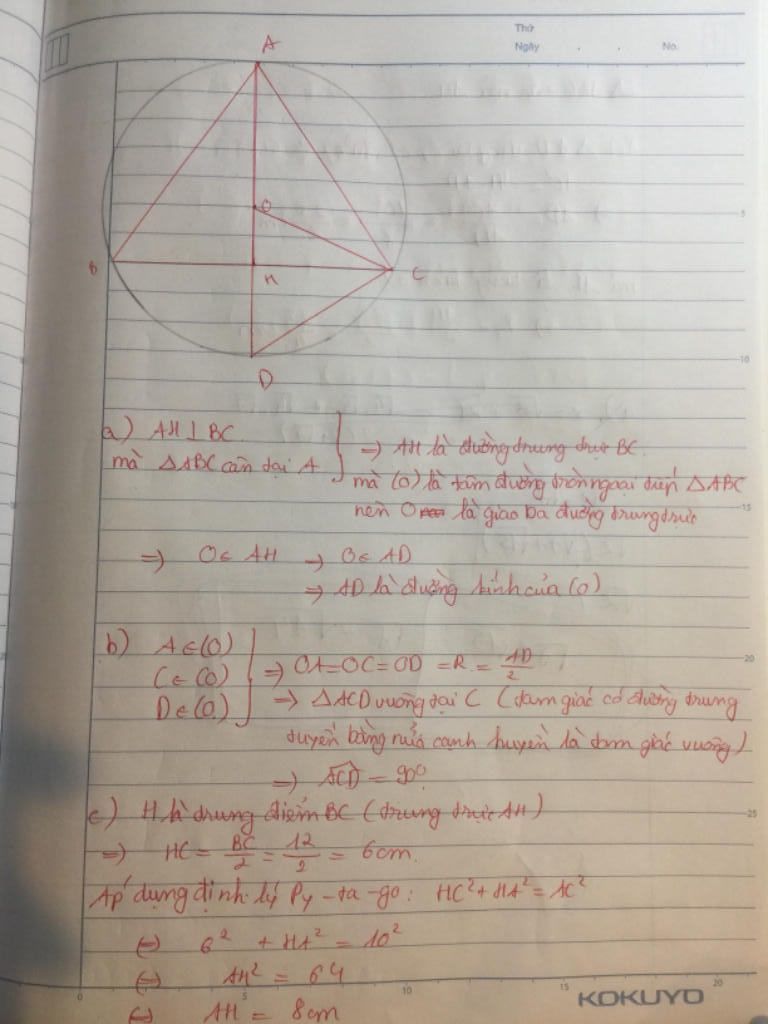 Thứ
Ngày . . No.
A
O
B
H
C
D
5
10
15
20
25
a) AH ⊥ BC
mà ΔABC cân tại A
=> AH là đường trung trực BC
mà (O) là tâm đường tròn ngoại tiếp ΔABC
nên O là giao ba đường trung trực
=> O ∈ AH → O ∈ AD
=> AD là đường kính của (O)
b) A ∈ (O)
C ∈ (O)
D ∈ (O)
=> OA = OC = OD = R = AD/2
=> ΔACD vuông tại C (tam giác có đường trung
tuyến bằng nửa cạnh huyền là tam giác vuông)
=> ACD = 90°
c) H là trung điểm BC (trung trực AH)
=> HC = BC/2 = 12/2 = 6cm.
Áp dụng định lý Py-ta-go: HC² + HA² = AC²
(=) 6² + HA² = 10²
(=) AH² = 64
(=) AH = 8cm
0 5 10 15 20
KOKUYO